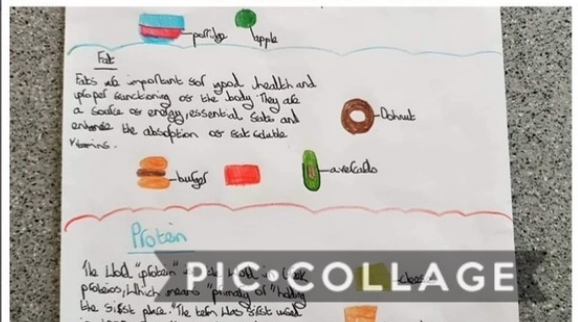 porridge
apple
Fat
Fats are important for good health and
proper functioning of the body. They are
a source of energy, essential fats and
enhance the absorption of fat soluble
vitamins.
Dohnut
burger
avercado
Protein
The Word "protein" is
proteios, Which means "primary or "holding
the first place." The term Was first used
PIC•COLLAGE